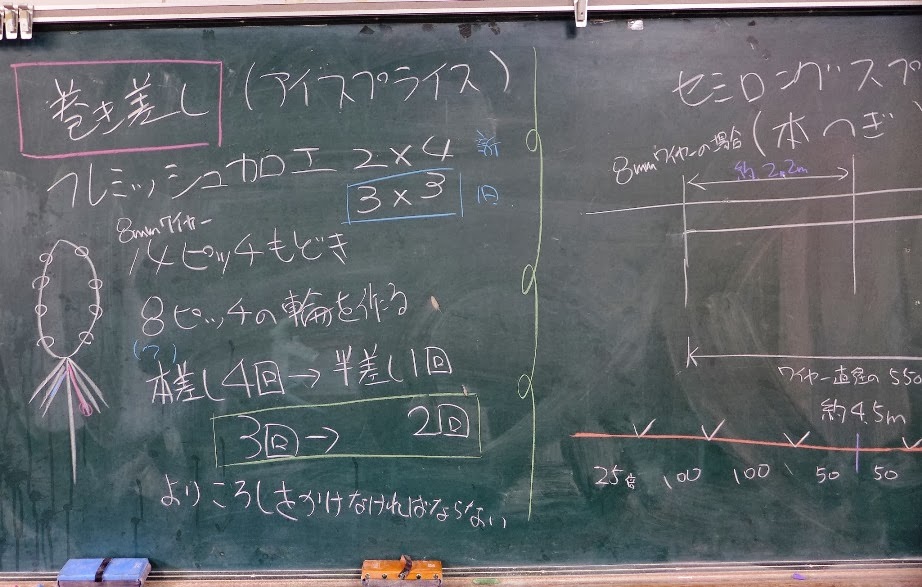 巻き差し (アイスプライス)
フレミッシュ加工 2×4 新
3×3 回
8mmワイヤー
14ピッチもどき
8ピッチの輪を作る
(7)
本差し4回→半差し1回
3回→ 2回
よりころしをかけなければならない
セミロングスプ
8mmワイヤーの場合 (本つぎ
約2.2m
ワイヤー直径の550
約4.5m
25倍 100 100 50 50